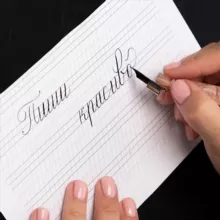 Пиши
красиво